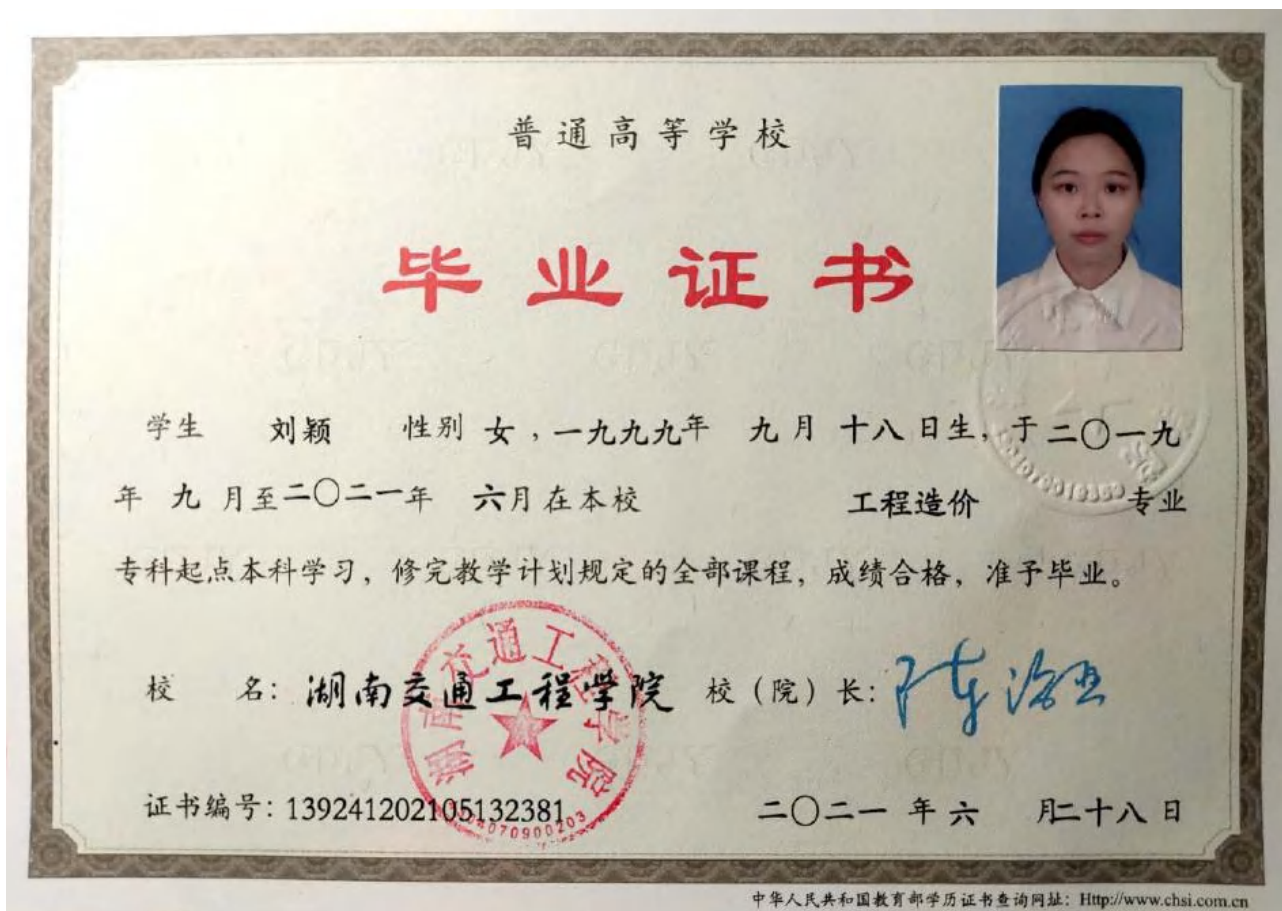 普通高等学校
毕业证书
学生 刘颖 性别 女，一九九九年 九月 十八日生，于二〇一九
年 九 月至二〇二一年 六月在本校 工程造价 专业
专科起点本科学习，修完教学计划规定的全部课程，成绩合格，准予毕业。
校 名：湖南交通工程学院 校（院）长：
湖南交通工程学院
证书编号：139241202105132381 二〇二一 年 六 月二十八日
中华人民共和国教育部学历证书查询网址：Http://www.chsi.com.cn